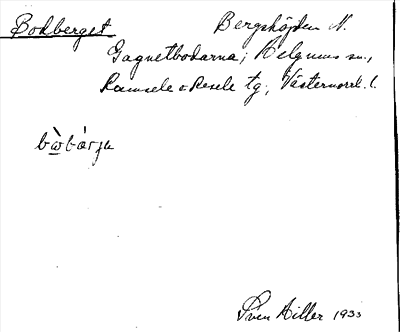 Bodberget
Bergshöjden N.
Gagnetbodarna; Helgums sn.,
Ramsele o Resele tg., Västernorrl. l.
Sven Hiller 1933